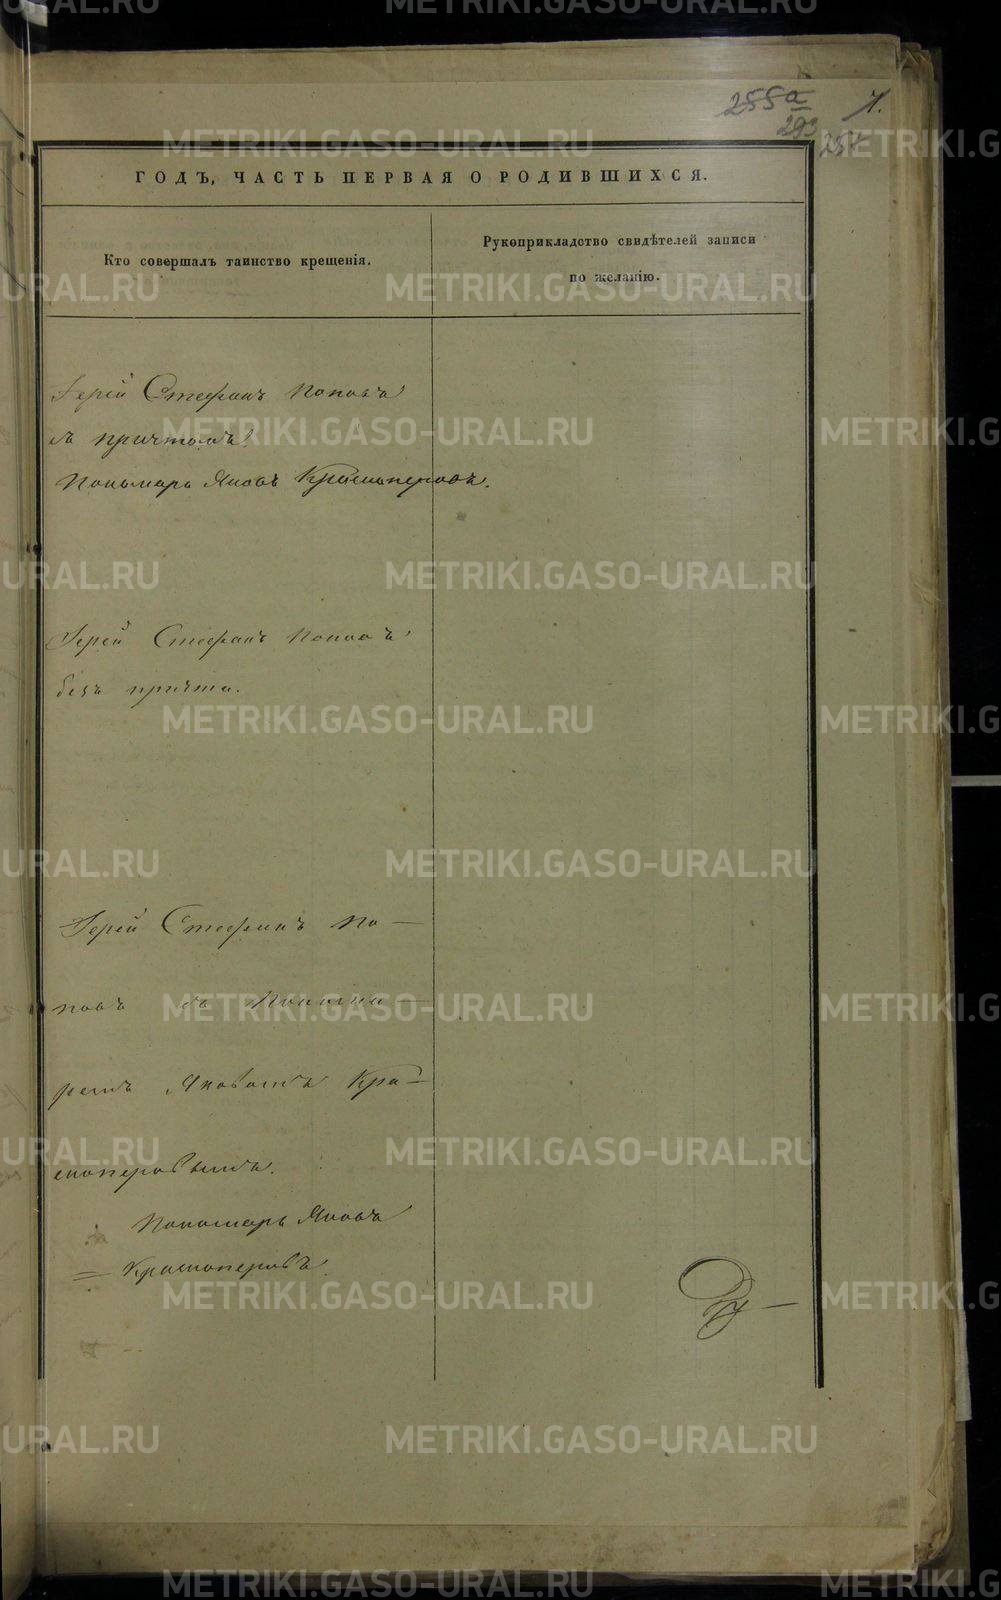 255а
293
257
7.
ГОДЪ, ЧАСТЬ ПЕРВАЯ О РОДИВШИХСЯ.
Кто совершалъ таинство крещенія.
Рукоприкладство свидѣтелей записи
по желанію.
Іерей Стефанъ Поповъ
съ причтомъ.
Пономарь Яковъ Красноперовъ.
Іерей Стефанъ Поповъ
безъ причта.
Іерей Стефанъ По—
повъ съ Понома—
ремъ Яковомъ Кра—
сноперовымъ.
Пономарь Яковъ
= Красноперовъ.
METRIKI.GASO-URAL.RU